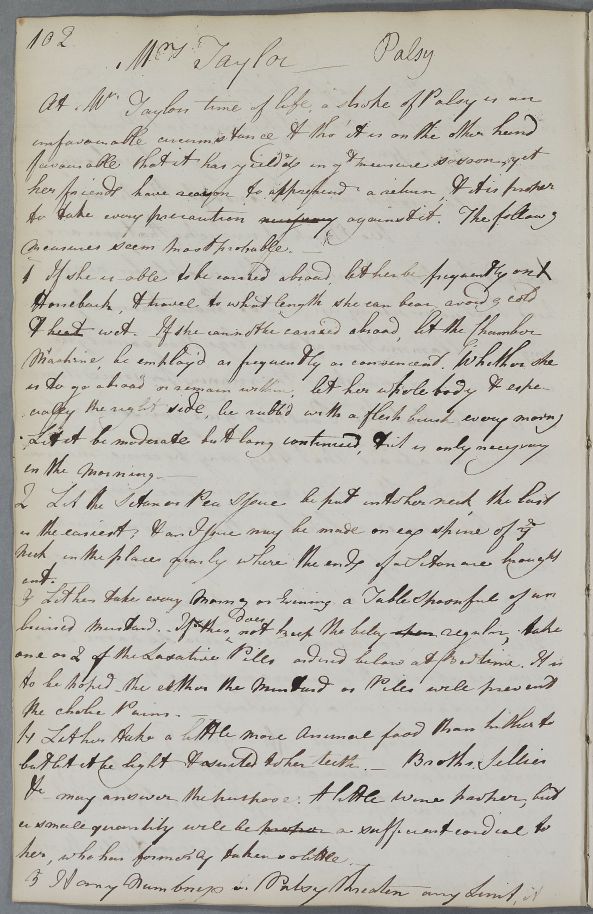 102
Mrs Taylor — Palsy
At Mrs Taylors time of life, a stroke of Palsy is an
unfavourable circumstance & tho' it is on the other hand
favourable that it has yielded in gt measure so soon, yet
her friends have reason to apprehend a return, & it is proper
to take every precaution necessary against it. The followg
measures seem most probable. —
1 If she is able to be carried abroad, let her be frequently on
Horseback, & travel to what length she can bear, avoidg cold
& heat wet. If she cannot be carried abroad, let the Chamber
Machine, be employ'd as frequently as convenient. Whether she
is to go abroad or remain within, let her whole body & espe-
cially the right side, be rubb'd with a flesh brush every morng
Let it be moderate but long continued, & it is only necessary
in the morning. —
2 Let the Seton or Pea Issue be put into her neck, the last
is the easiest; & an Issue may be made on each spine of ye
neck in the places nearly where the ends of a Seton are brought
out.
3 Let her take every morng or Evening a Table Spoonful of un
bruised mustard. If this does not keep the belly regular, take
one or 2 of the Laxative Pills ordered below at Bedtime. It is
to be hoped the either the Mustard or Pills will prevent
the cholic Pains. —
4 Let her take a little more animal food than hitherto
but let it be light & suited to her teeth. — Broths, Jellies
&c — may answer the purpose. A little wine is proper, but
a small quantity will be proper a sufficient cordial to
her, who has formerly taken so little.
5 If any Numbness or Palsy threaten any Limb,